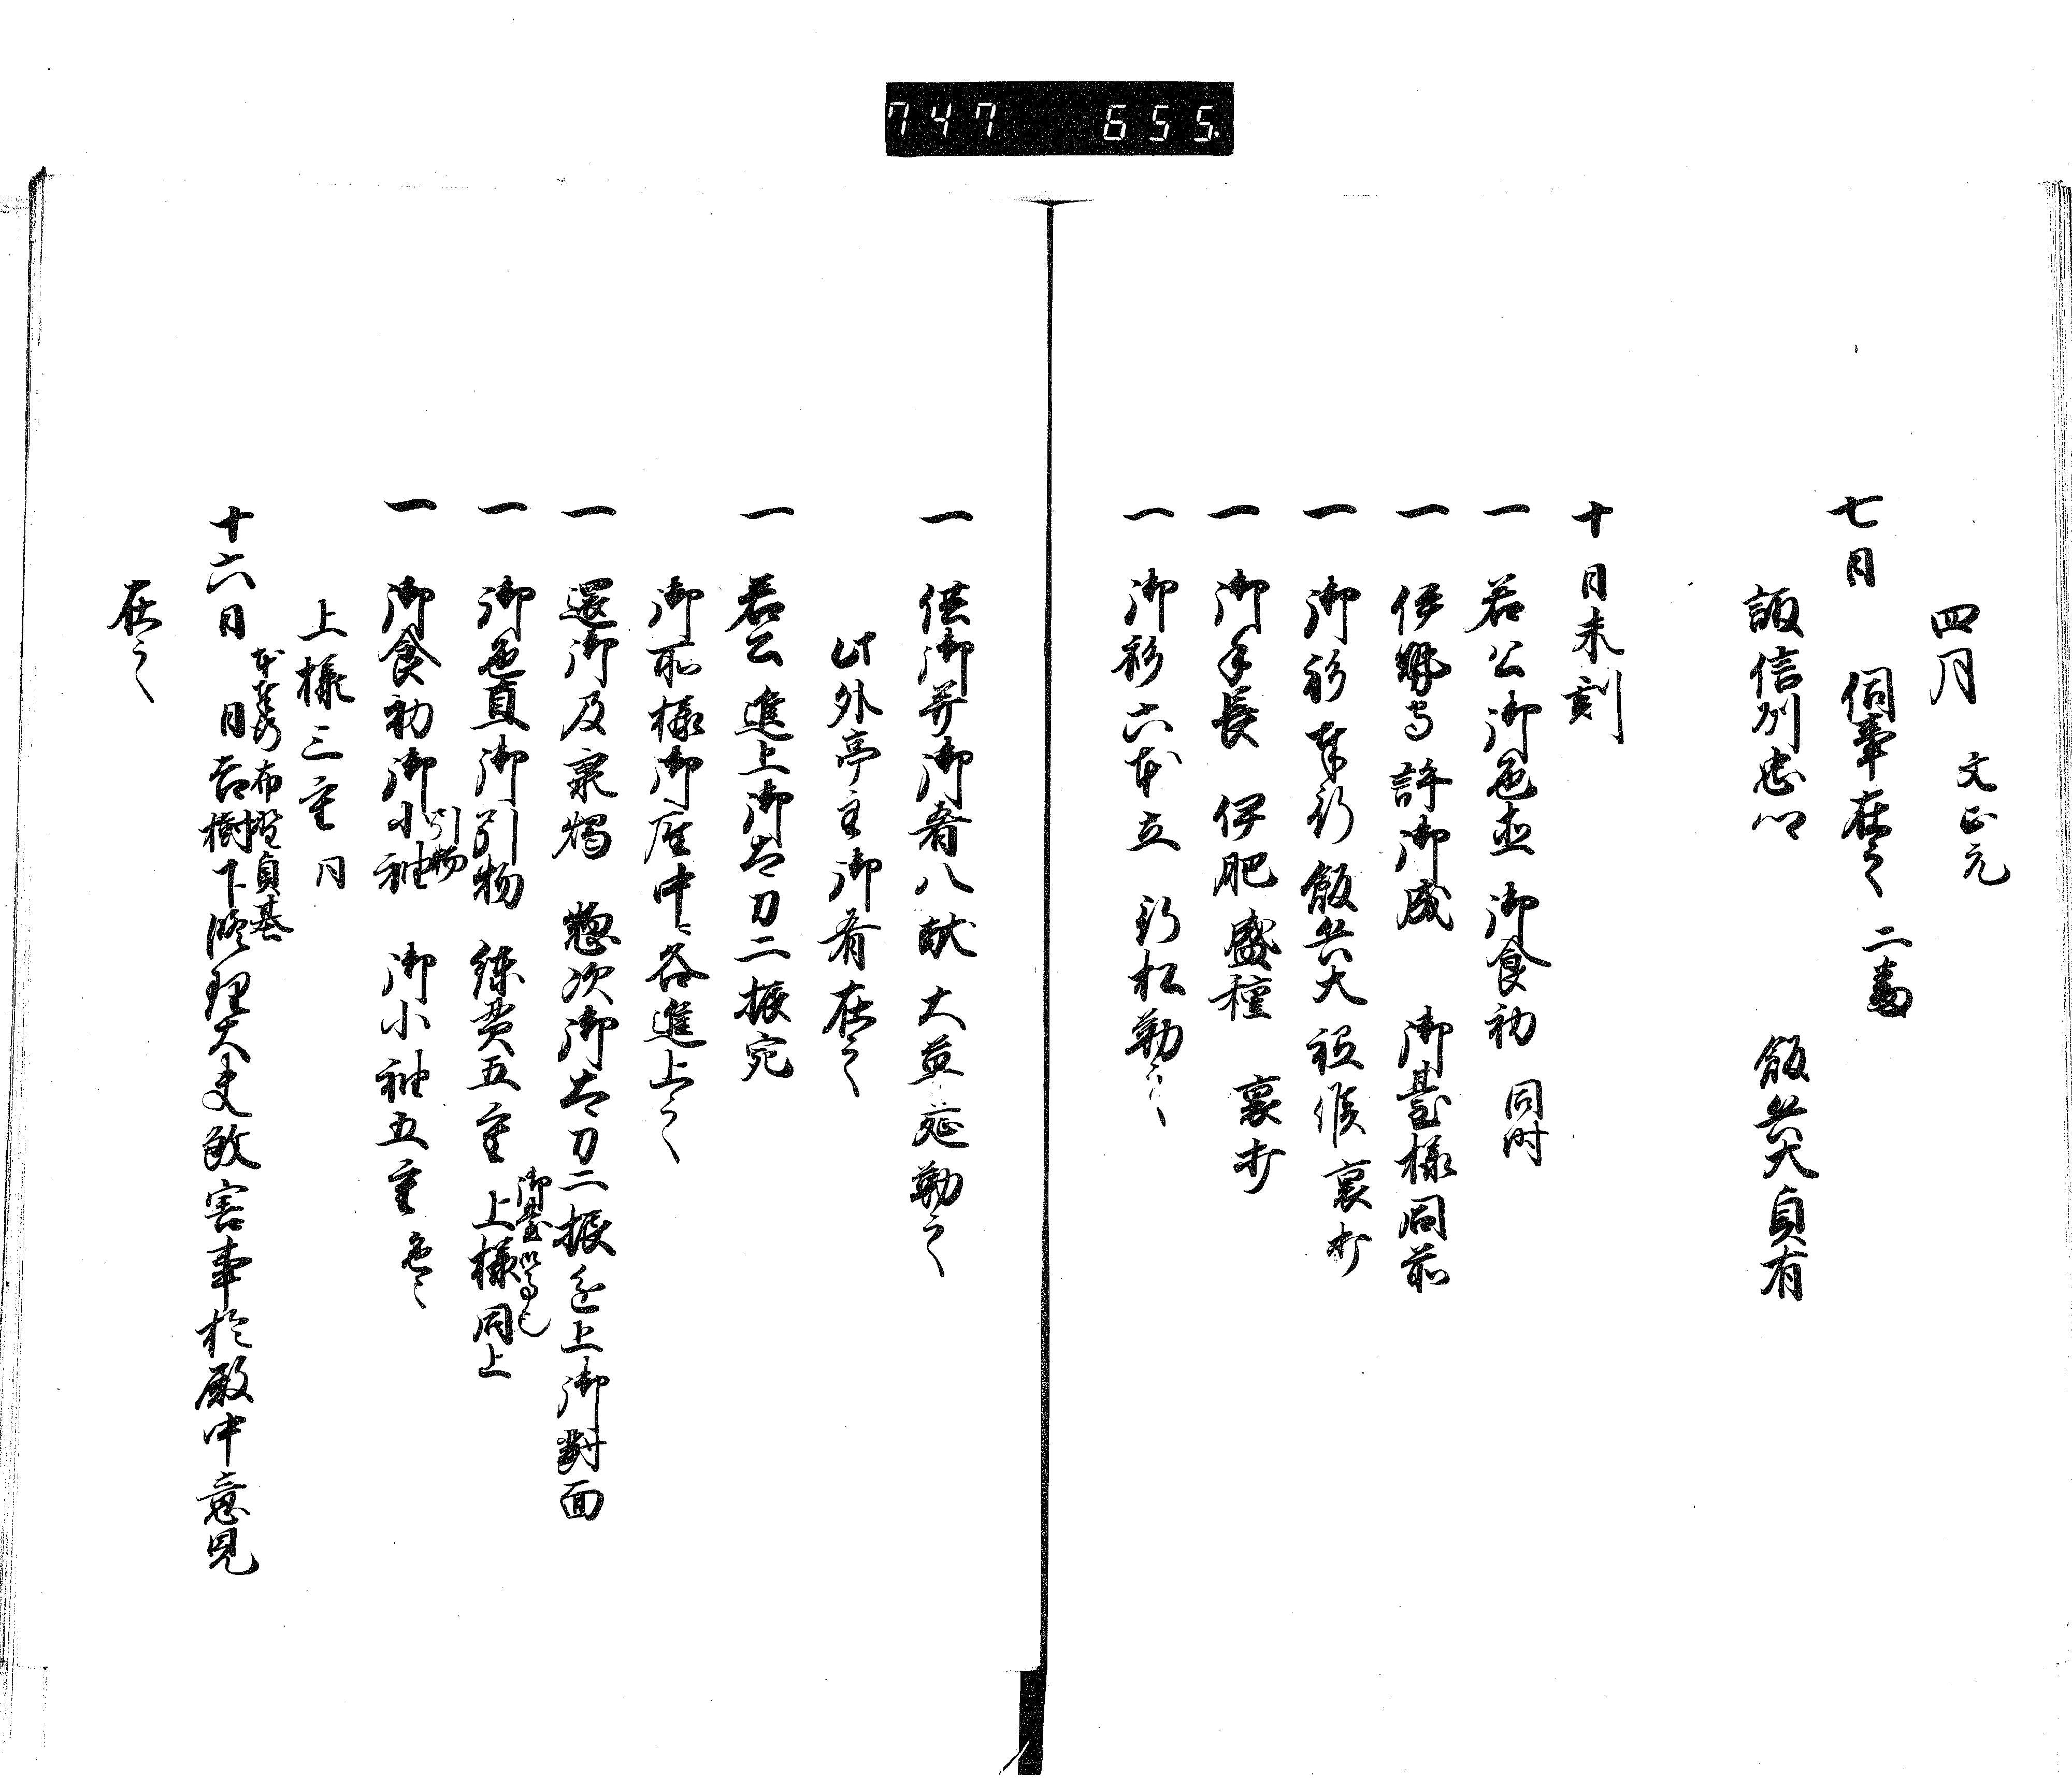 747 655
四月 文正元
七日 伺事在之 二番
諏信州忠郷 飯大貞有
十日未刻
一 若公御色直御食初 同時
一 伊勢守許御成 御臺様同前
一 御飯大 祗候裏打
一 御手長 伊肥盛種 裏打
一 御六本立 勤之
一 供御并御肴八献 大草 勤之
此外亭主御肴在之
一 若公進上御太刀二振宛
御所様御座中各進上之
一 還御及秉燭 惣次御太刀二振進上御對面
一 御色直御引物 練貫五重 上様同上
御臺
一 御食初御小袖 御小袖五重
引物
上様三重 同
十六日 日吉樹下修理大夫敏害事於殿中意見
布野貞基
在之